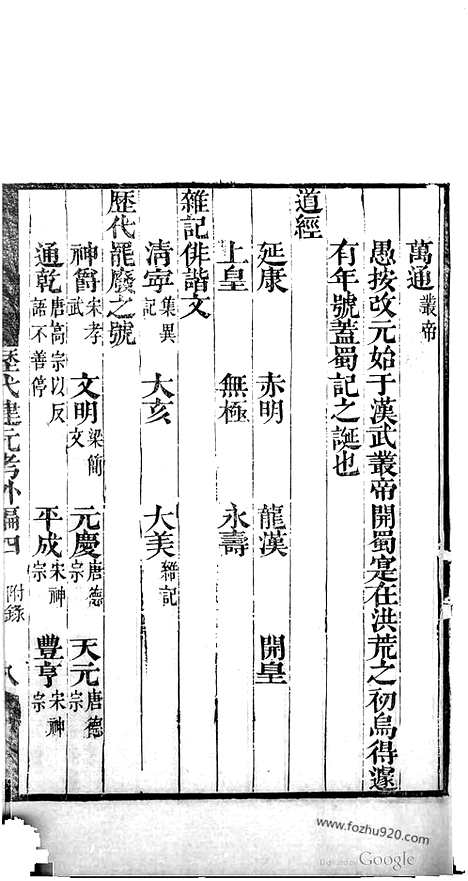 萬通叢帝
愚按改元始于漢武叢帝開蜀寔在洪荒之初烏得遽
有年號蓋蜀記之誕也
道經
延康 赤明 龍漢 開皇
上皇 無極 永壽
雜記俳諧文
清寧集異記 大亥 大美
歷代罷廢之號
神爵宋孝武 文明梁簡文 元慶唐德宗 天元唐德宗
通乾唐高宗以反語不善停 平成宋神宗 豐亨宋神宗
歷代建元考外編四 附錄 八
www.fozhu920.com
Digitized by Google